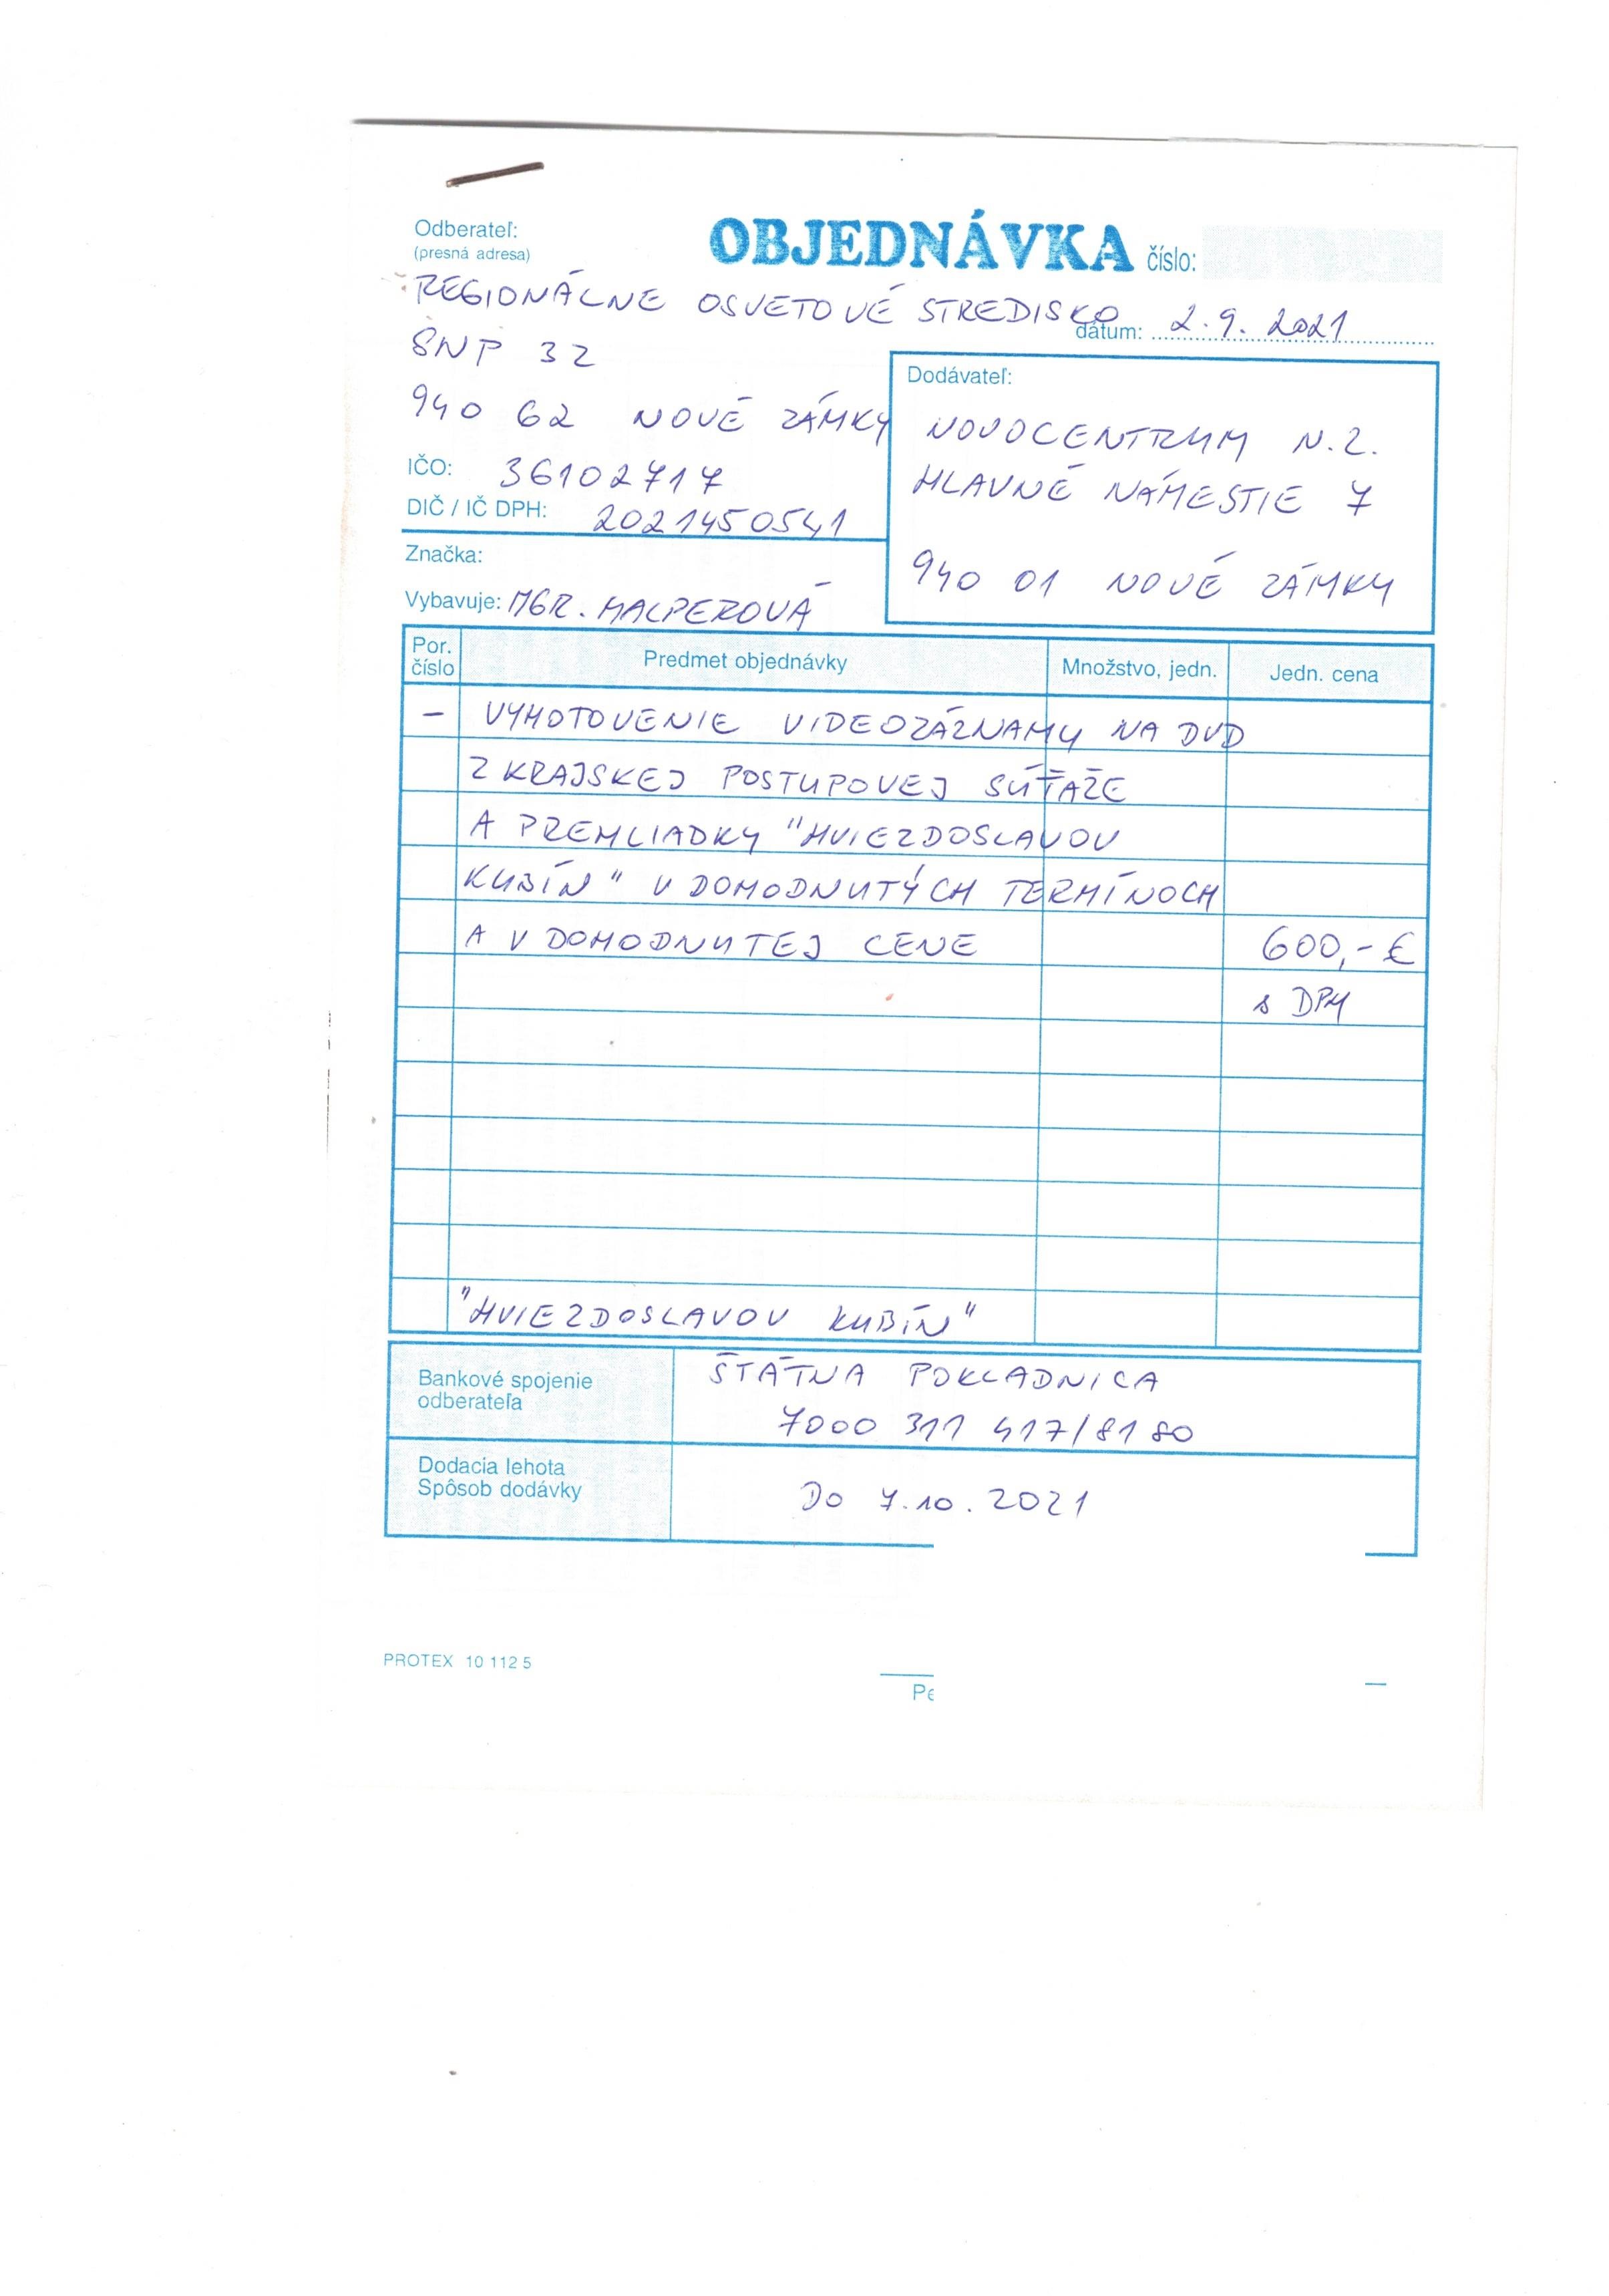 Odberateľ:
(presná adresa)
OBJEDNÁVKA číslo:
REGIONÁLNE OSVETOVÉ STREDISKO
dátum: 2.9.2021
SNP 32
940 62 NOVÉ ZÁMKY
IČO: 36102717
DIČ / IČ DPH: 2021450541
Značka:
Vybavuje: MGR. HALPEROVÁ
Dodávateľ:
NOVOCENTRUM N.Z.
HLAVNÉ NÁMESTIE 7
940 01 NOVÉ ZÁMKY
Por. číslo Predmet objednávky Množstvo, jedn. Jedn. cena
– VYHOTOVENIE VIDEOZÁZNAMU NA DVD
Z KRAJSKEJ POSTUPOVEJ SÚŤAŽE
A PREHLIADKY "HVIEZDOSLAVOV
KUBÍN" V DOHODNUTÝCH TERMÍNOCH
A V DOHODNUTEJ CENE 600,- €
s DPH
"HVIEZDOSLAVOV KUBÍN"
Bankové spojenie
odberateľa
ŠTÁTNA POKLADNICA
7000 311 417/8180
Dodacia lehota
Spôsob dodávky
DO 7.10.2021
PROTEX 10 112 5
Pe